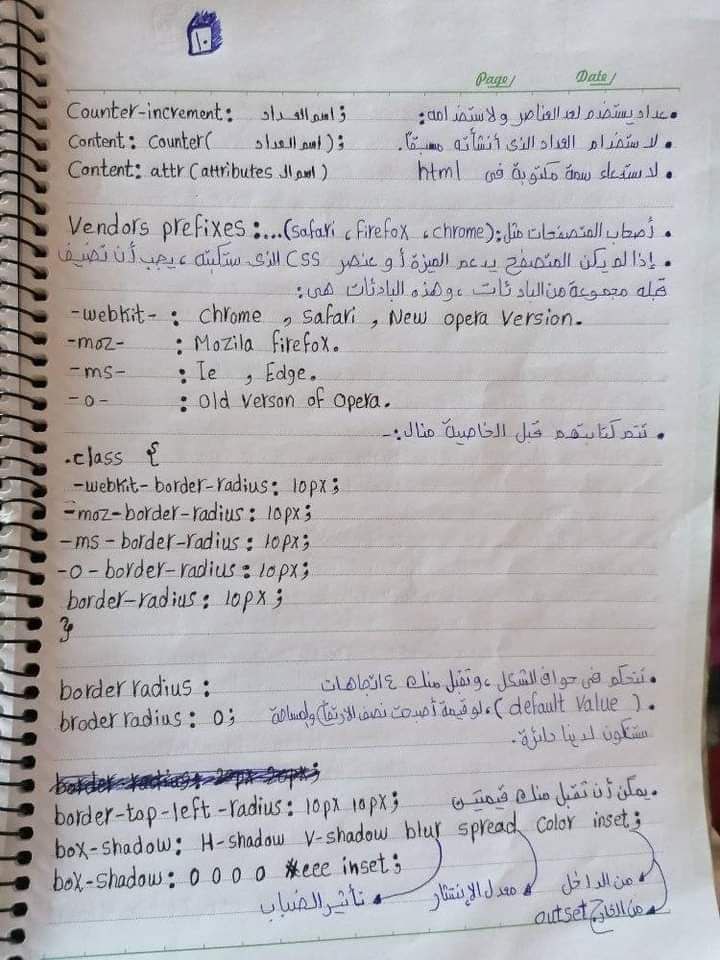 ١٠
Page/ Date/
Counter-increment: اسم العداد ; • عداد يستخدم لعد العناصر ولاستخدامه:
Content: Counter( اسم العداد ); • لاستخدام العداد الذى أنشأته مسبقاً.
Content: attr (attributes اسم ال) • لاستدعاء سمة مكتوبة فى html
Vendors prefixes:...(safari ، firefox ، chrome): أصحاب المتصفحات مثل •
• إذا لم يكن المتصفح يدعم الميزة أو عنصر CSS الذى ستكتبه ، يجب أن تضيف
قبله مجموعة من البادئات ، وهذه البادئات هى:
-webkit- : chrome , safari , New opera version.
-moz- : Mozila firefox.
-ms- : Ie , Edge.
-o- : old verson of opera.
• تتم كتابتهم قبل الخاصية مثال:-
.class {
-webkit-border-radius: 10px;
-moz-border-radius: 10px;
-ms-border-radius: 10px;
-o-border-radius: 10px;
border-radius: 10px;
}
border radius : • تتحكم فى حواف الشكل ، وتقبل منك ٤ اتجاهات
broder radius: 0; • (default value) ، لو قيمة أصبحت نصف الارتفاع والمساحة
ستكون لدينا دائرة.
border-top-left-radius: 10px 10px; • يمكن أن تقبل منك قيمتين
box-shadow: H-shadow V-shadow blur spread color inset;
box-shadow: 0 0 0 0 #eee inset;
• تأثير الضباب • معدل الإنتشار • من الداخل
• من الخارج outset